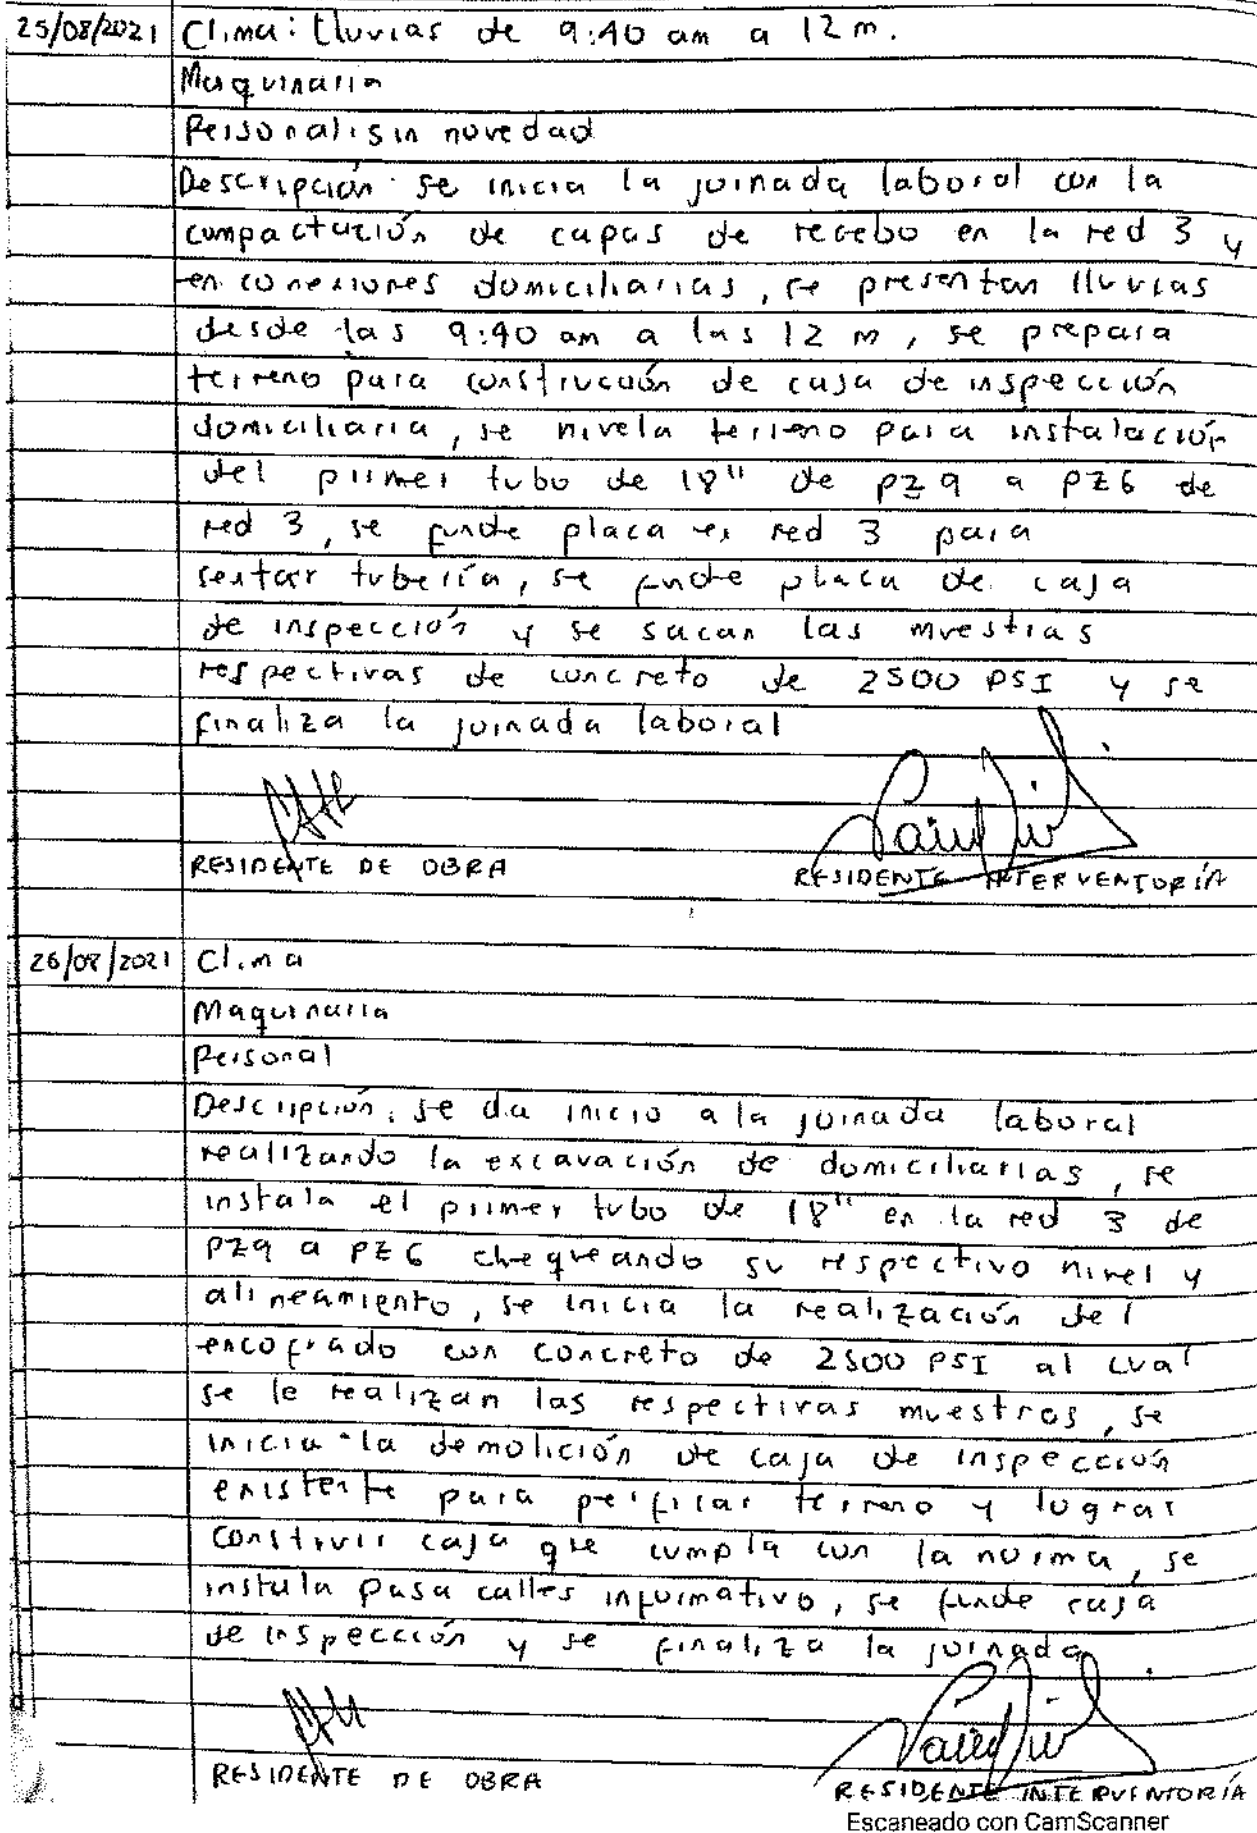 25/08/2021 Clima: Lluvias de 9:40 am a 12 m.
Maquinaria
Personal: sin novedad
Descripción: se inicia la jornada laboral con la
compactación de capas de recebo en la red 3 y
en conexiones domiciliarias, se presentan lluvias
desde las 9:40 am a las 12 m, se prepara
terreno para construcción de caja de inspección
domiciliaria, se nivela terreno para instalación
del primer tubo de 18" de PZ9 a PZ6 de
red 3, se funde placa en red 3 para
sentar tubería, se funde placa de caja
de inspección y se sacan las muestras
respectivas de concreto de 2500 PSI y se
finaliza la jornada laboral
RESIDENTE DE OBRA RESIDENTE INTERVENTORÍA
26/08/2021 Clima
Maquinaria
Personal
Descripción: se da inicio a la jornada laboral
realizando la excavación de domiciliarias, se
instala el primer tubo de 18" en la red 3 de
PZ9 a PZ6 chequeando su respectivo nivel y
alineamiento, se inicia la realización del
encofrado con concreto de 2500 PSI al cual
se le realizan las respectivas muestras, se
inicia la demolición de caja de inspección
existente para perfilar terreno y lograr
construir caja que cumpla con la norma, se
instala pasa calles informativo, se funde caja
de inspección y se finaliza la jornada
RESIDENTE DE OBRA RESIDENTE INTERVENTORÍA
Escaneado con CamScanner